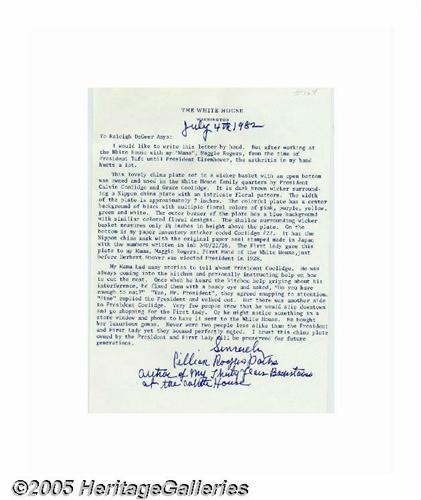 THE WHITE HOUSE
WASHINGTON
July 4th 1982
To Raleigh DeGeer Amyx:
I would like to write this letter by hand. But after working at
the White House with my "Mama", Maggie Rogers, from the time of
President Taft until President Eisenhower, the arthritis in my hand
hurts a lot.
This lovely china plate set in a wicker basket with an open bottom
was owned and used in the White House family quarters by President
Calvin Coolidge and Grace Coolidge. It is dark brown wicker surround-
ing a Nippon china plate with an intricate floral pattern. The width
of the plate is approximately 7 inches. The colorful plate has a center
background of black with multiple floral colors of pink, purple, yellow,
green and white. The outer border of the plate has a blue background
with similiar colored floral designs. The shallow surrounding wicker
basket measures only inches in height above the plate. On the
bottom is my paper inventory sticker coded Coolidge #27. It has the
Nippon china mark with the original paper seal stamped made in Japan
with the numbers written in ink The First Lady gave this
plate to my Mama, Maggie Rogers, First Maid of the White House, just
before Herbert Hoover was elected President in 1928.
My Mama had many stories to tell about President Coolidge. He was
always coming into the kitchen and personally instructing help on how
to cut the meat. Once when he heard the kitchen help griping about his
interference, he fixed them with a beady eye and asked, "Do you have
enough to eat?" "Yes, Mr. President", they agreed snapping to attention.
"Fine" replied the President and walked out. But there was another side
to President Coolidge. Very few people knew that he would slip downtown
and go shopping for the First Lady. Or he might notice something in a
store window and phone to have it sent to the White House. He bought
her luxurious gowns. Never were two people less alike than the President
and First Lady yet they seemed perfectly mated. I trust this china plate
owned by the President and First Lady will be preserved for future
generations.
Sincerely
Lillian Rogers Parks
author of My Thirty Years Backstairs
at the White House
©2005 HeritageGalleries